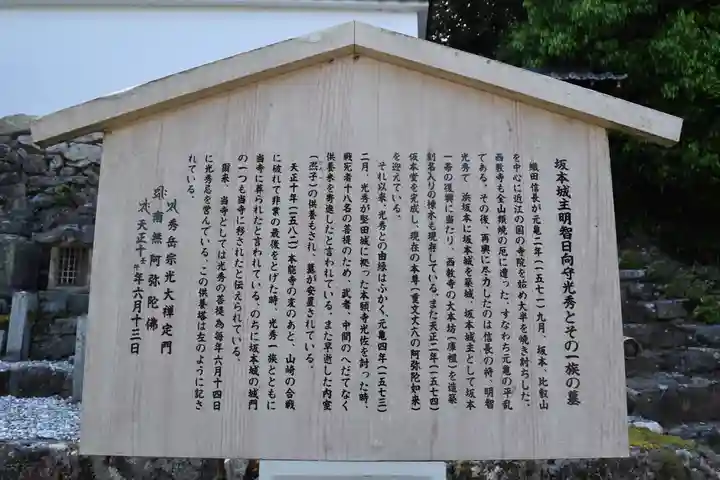 坂本城主明智日向守光秀とその一族の墓
織田信長が元亀二年(一五七一)九月、坂本、比叡山
を中心に近江の国の寺院を始め大半を焼き討ちした。
西教寺も全山類焼の厄に遭った。すなわち元亀の兵乱
である。その後、再興に尽力したのは信長の将、明智
光秀で 浜坂本に坂本城を築城、坂本城主として坂本
一帯の復興に当たり、西教寺の大本坊(庫裡)を造築
刻名入りの棟木も現存している。また天正二年(一五七四)
仮本堂を完成し、現在の本尊(重文丈六の阿弥陀如来)
を迎えている。
それ以来、光秀との由緒はふかく、元亀四年(一五七三)
二月、光秀が堅田城に拠った本願寺光佐を討った時、
戦死者十八名の菩提のため 武者、中間のへだてなく
供養米を寄進したと言われている。また早逝した内室
(煕子)の供養もされ、墓が安置されている。
天正十年(一五八二)本能寺の変のあと、山崎の合戦
に破れて非業の最後をとげた時、光秀一族とともに
当寺に葬られたと言われている。のちに坂本城の城門
の一つも当寺に移されたと伝えられている。
爾来、当寺としては光秀の菩提の為毎年六月十四日
に光秀忌を営んでいる。この供養塔は左のように記さ
れている。
秀岳宗光大禅定門
南無阿弥陀佛
天正十年六月十三日